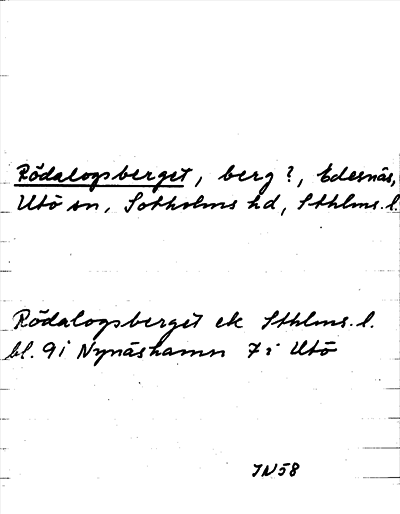 Rödalogsberget, berg?, Edesnäs,
Utö sn, Sotholms hd, Sthlms. l.
Rödalogsberget ek Sthlms. l.
bl. 9i Nynäshamn 7i Utö
JN58